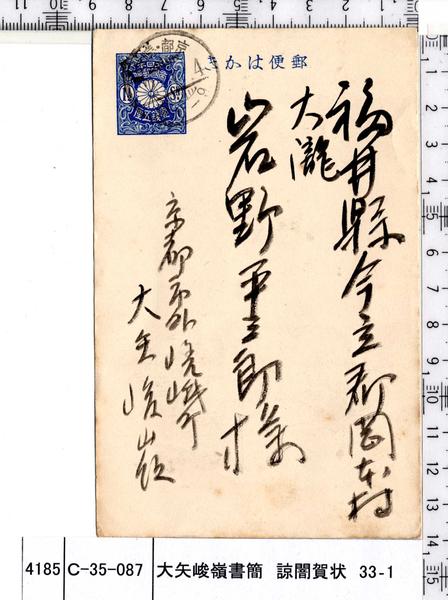 郵便はかき
京都・嵯峨
福井縣今立郡岡本村
大瀧
岩野平三郎様
京都市外嵯峨町
大矢峻嶺
4185 C-35-087 大矢峻嶺書簡 諒闇賀状 33-1